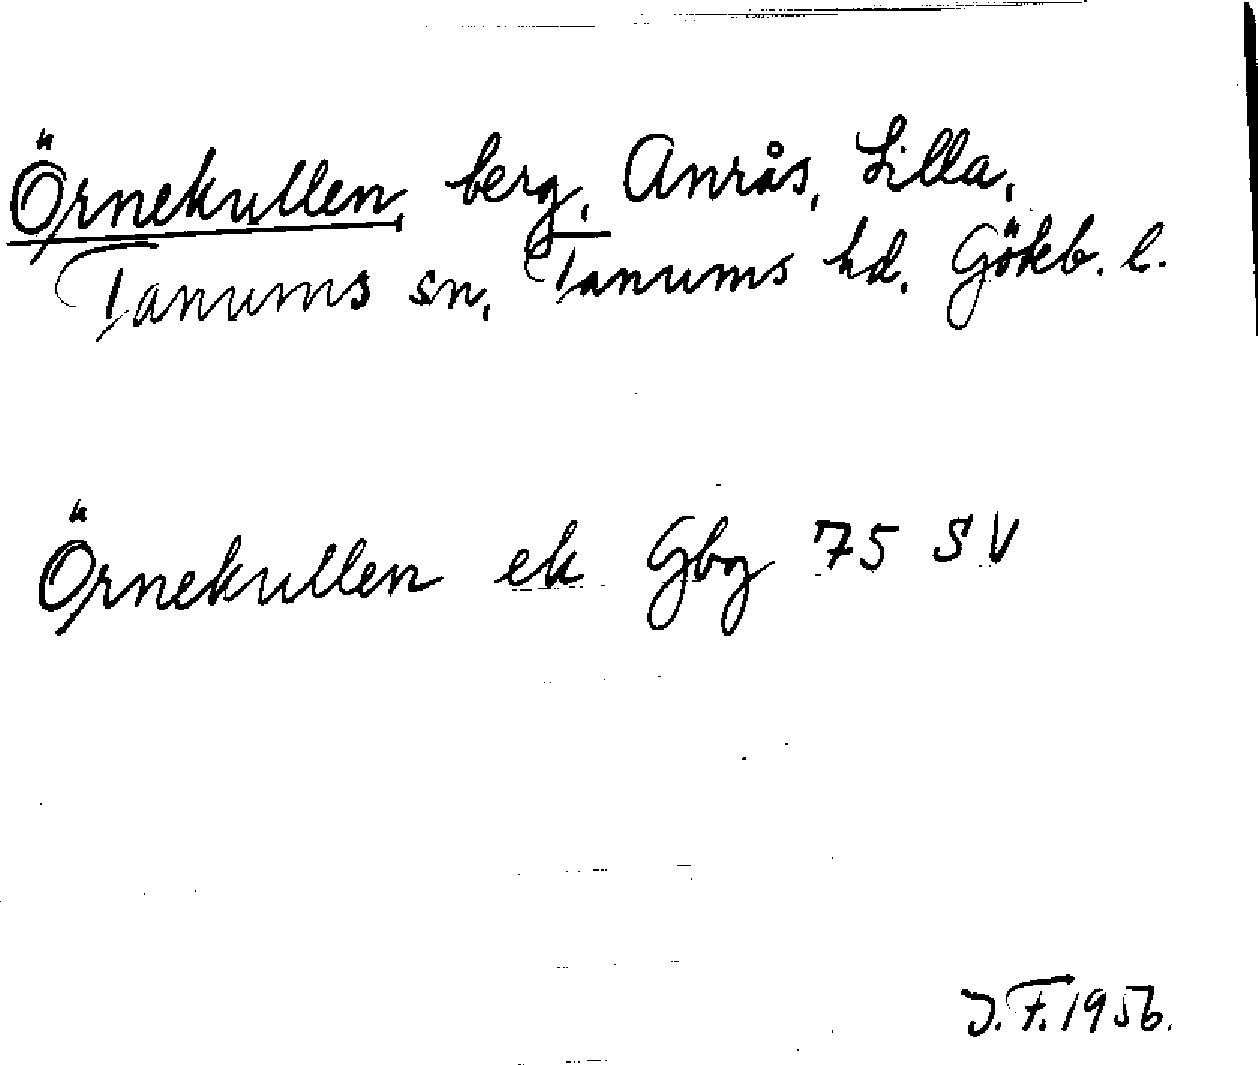 Örnekullen, berg, Anrås, Lilla,
Tanums sn, Tanums hd, Göteb. l.
Örnekullen ek Gbg 75 SV
J.F. 1956.